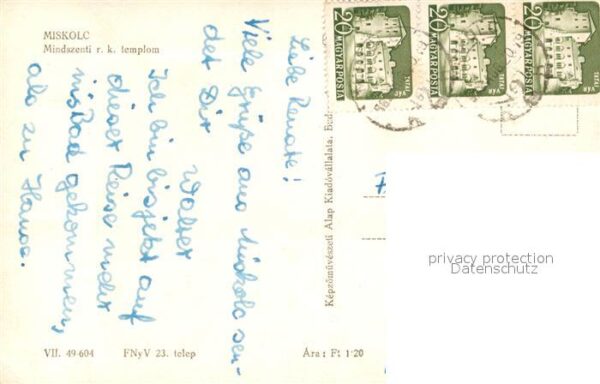 MISKOLC
Mindszenti r. k. templom
Liebe Renate!
Viele Grüße aus Miskolc sen-
det Dir
Walter
Ich bin bisjetzt auf
dieser Reise mehr
ins Bad gekommen,
als zu Hause.
VII. 49 604
FNyV 23. telep
Ára: Ft 1·20
Képzőművészeti Alap Kiadóvállalata, Bud
20 MAGYAR POSTA
TATAI VÁR
20 MAGYAR POSTA
TATAI VÁR
20 MAGYAR POSTA
TATAI VÁR
privacy protection
Datenschutz